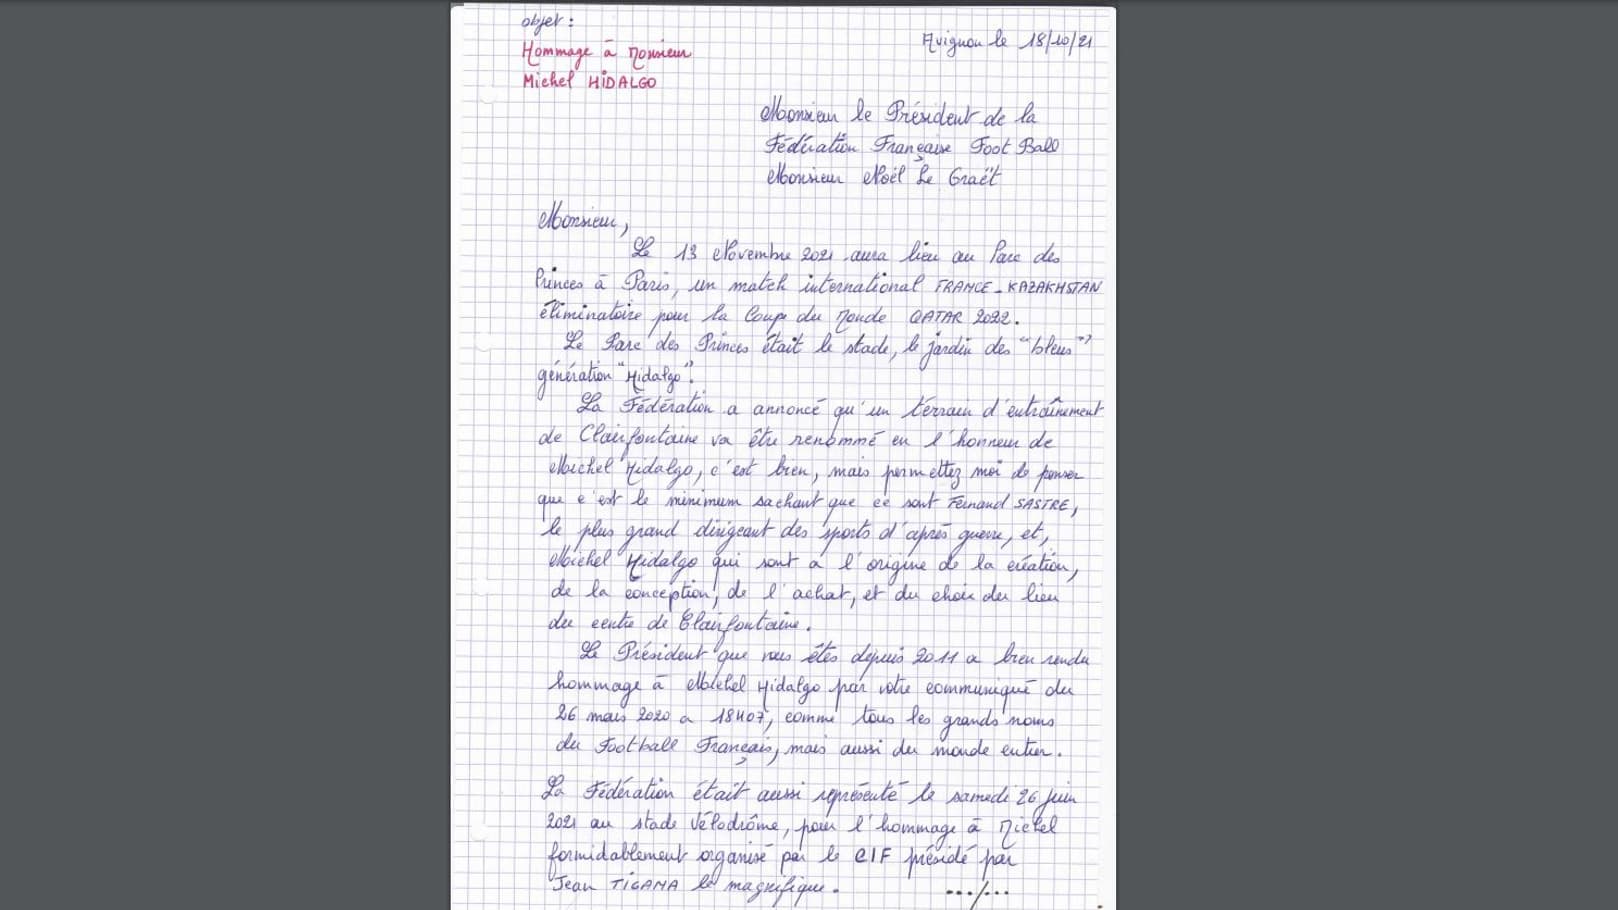 objet :
Hommage à Monsieur
Michel HIDALGO
Avignon le 18/10/21
Monsieur le Président de la
Fédération Française Foot Ball
Monsieur Noël Le Graët
Monsieur,
Le 13 Novembre 2021 aura lieu au Parc des
Princes à Paris, un match international FRANCE - KAZAKHSTAN
éliminatoire pour la Coupe du Monde QATAR 2022.
Le Parc des Princes était le stade, le jardin des "bleus"
génération "Hidalgo".
La Fédération a annoncé qu'un terrain d'entraînement
de Clairfontaine va être renommé en l'honneur de
Michel Hidalgo, c'est bien, mais permettez moi de penser
que c'est le minimum sachant que ce sont Fernand SASTRE,
le plus grand dirigeant des sports d'après guerre, et,
Michel Hidalgo qui sont a l'origine de la création,
de la conception, de l'achat, et du choix du lieu
du centre de Clairfontaine.
Le Président que vous êtes depuis 2011 a bien rendu
hommage à Michel Hidalgo par votre communiqué du
26 mars 2020 a 18H07, comme tous les grands noms
du Football Français, mais aussi du monde entier.
La Fédération était aussi représenté le samedi 26 juin
2021 au stade Vélodrôme, pour l'hommage à Michel
formidablement organisé par le CIF présidé par
Jean TIGANA le magnifique.
.../...